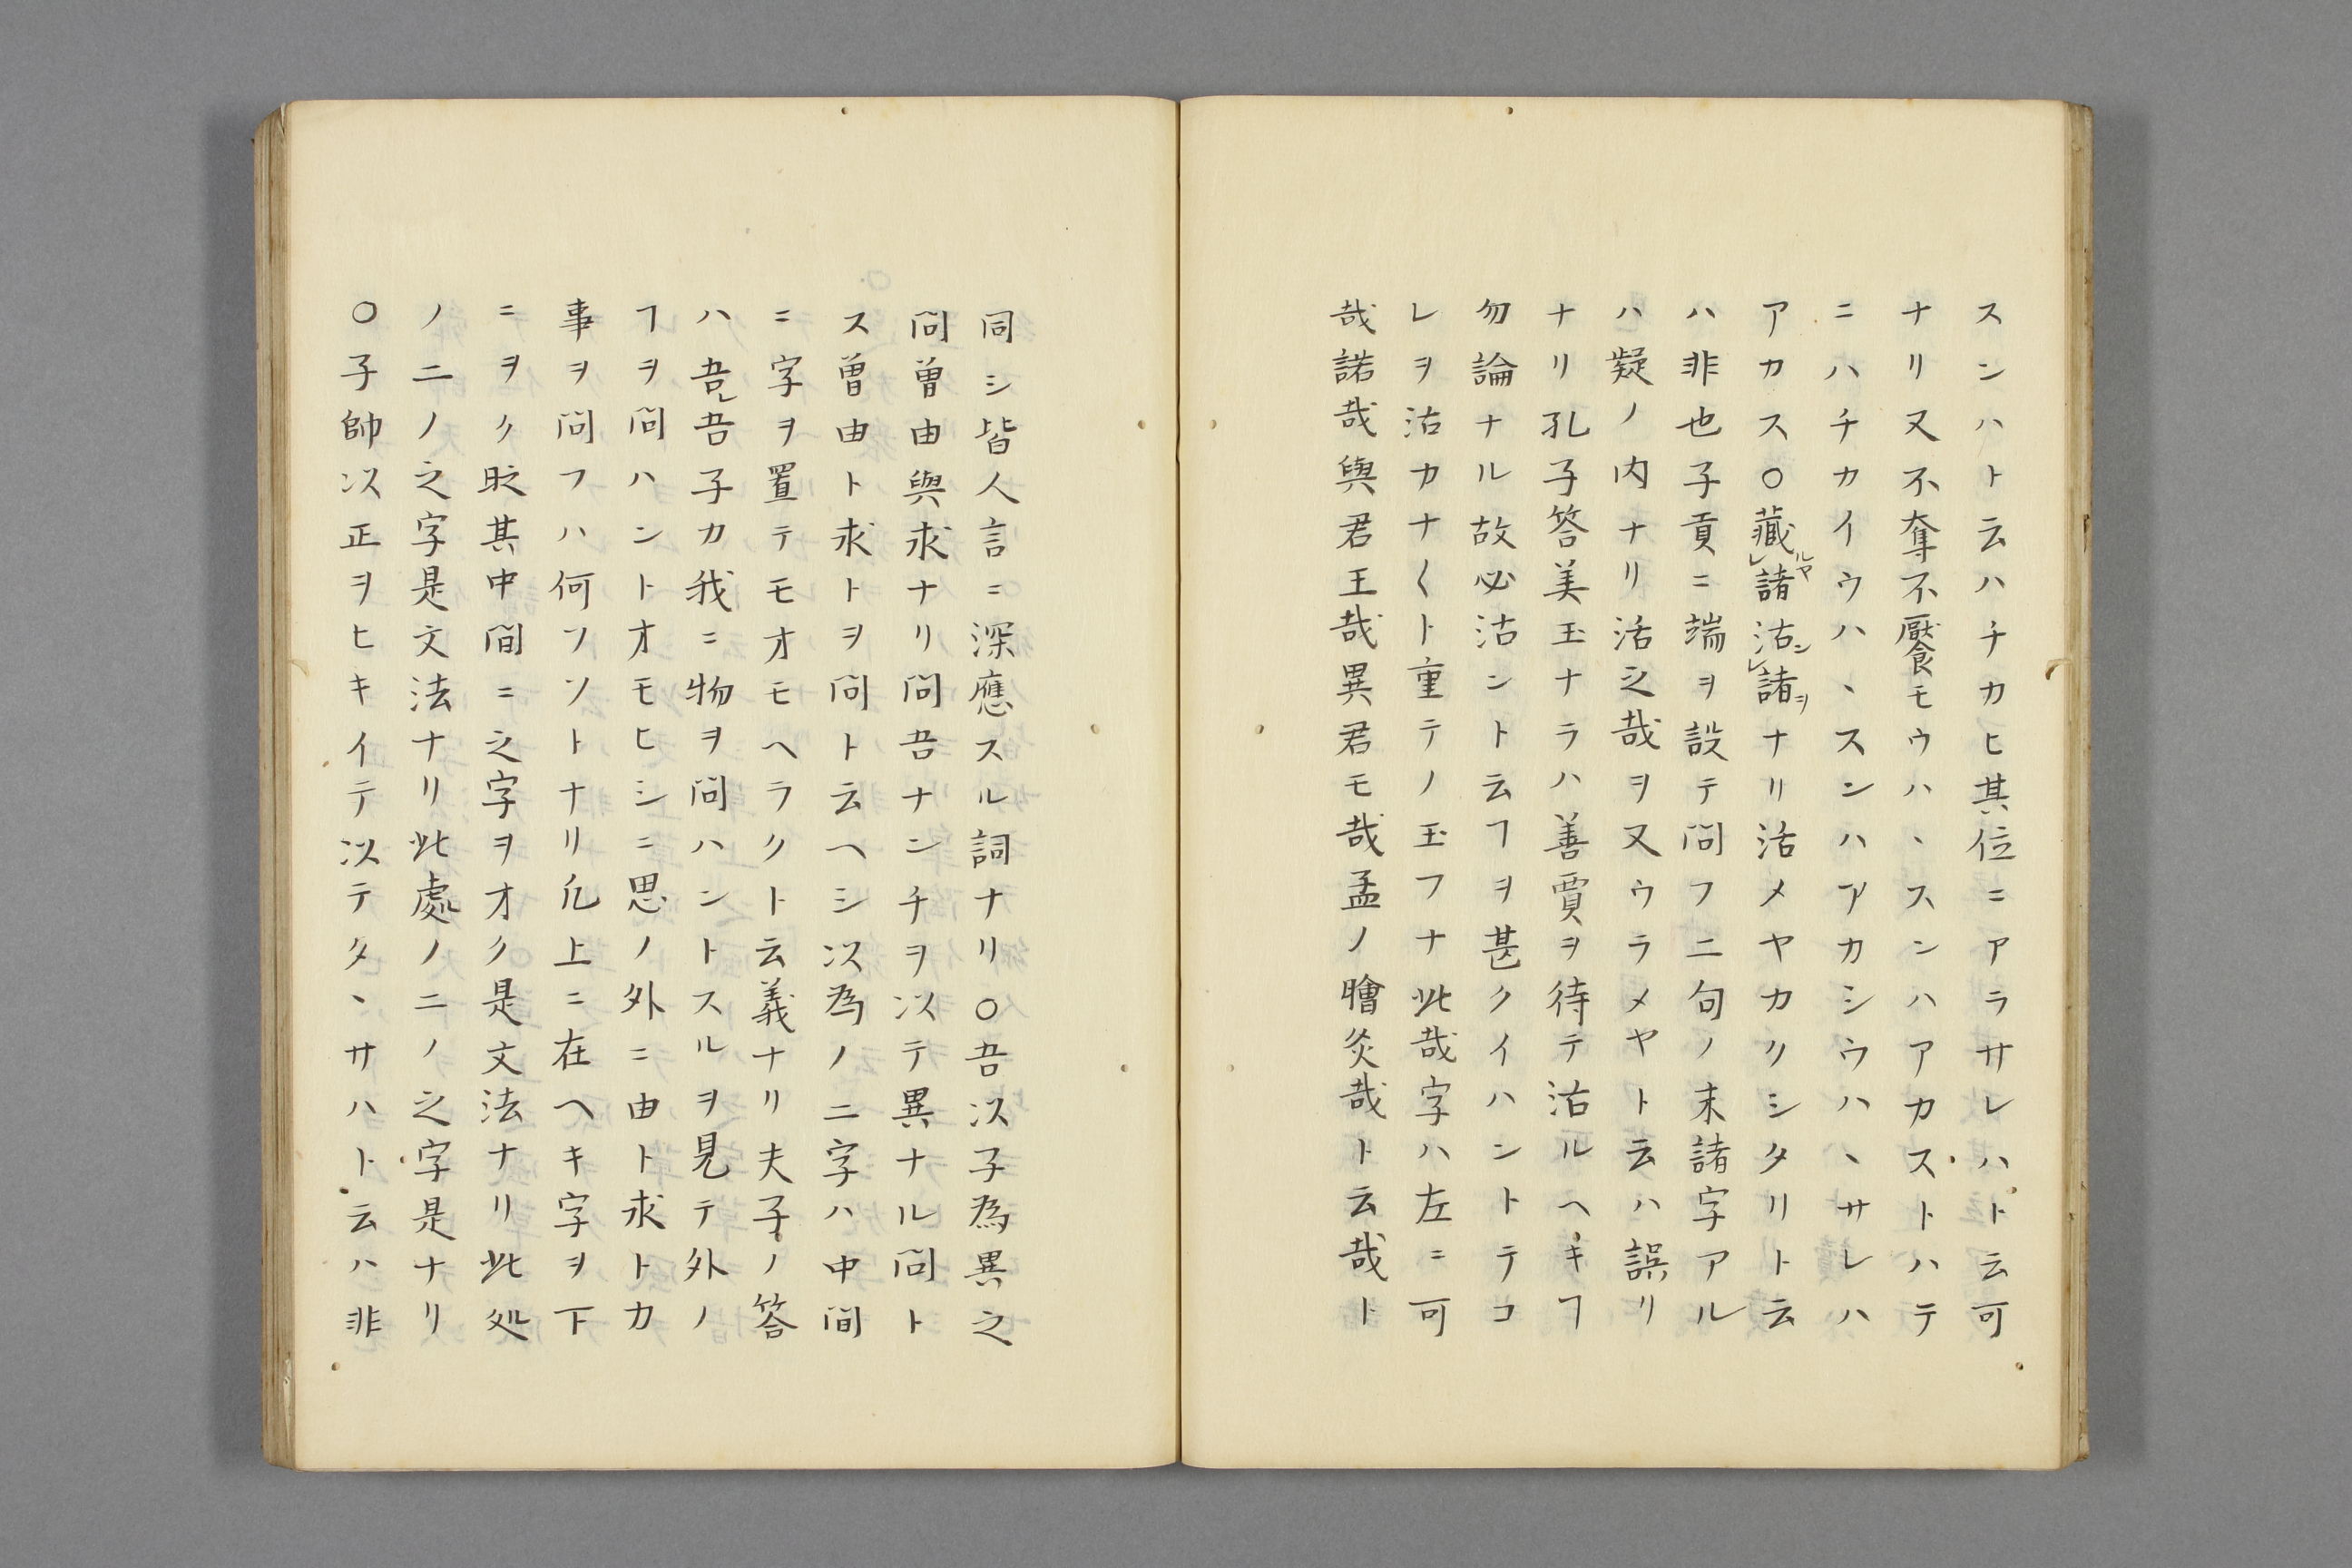 スンハト云ハチカヒ其位ニアラサレハト云可
ナリ又不奪不饜モウハヽスンハアカストハテ
ニハチカイウハヽスンハアカシウハヽサレハ
アカス〇藏ルヤレ諸沽シレ諸ヲナリ活メヤカクシタリト云
ハ非也子貢ニ端ヲ設テ問フ二句ノ末諸字アル
ハ疑ノ内ナリ活之哉ヲ又ウラメヤト云ハ誤リ
ナリ孔子答美玉ナラハ善賈ヲ待テ沽ルヘキヿ
勿論ナル故必沽ント云フヲ甚クイハントテコ
レヲ沽カナ〱ト重テノ玉フナ此哉字ハ左ニ可
哉諾哉與君王哉異君モ哉孟ノ膾炙哉ト云哉ト
同シ皆人言ニ深應スル詞ナリ〇吾以子為異之
問曽由與求ナリ問吾ナンチヲ以テ異ナル問ト
ス曽由ト求トヲ問ト云ヘシ以為ノ二字ハ中間
ニ字ヲ置テモオモヘラクト云義ナリ夫子ノ答
ハ吾レ吾子カ我ニ物ヲ問ハントスルヲ見テ外ノ
ヿヲ問ハントオモヒシニ思ノ外ニ由ト求トカ
事ヲ問フハ何ソソトナリ凢上ニ在ヘキ字ヲ下
ニヲク眨其中間ニ之字ヲオク是文法ナリ此処
ノ二ノ之字是文法ナリ此處ノニノ之字是ナリ
〇子帥以正ヲヒキイテ以テタヽサハト云ハ非